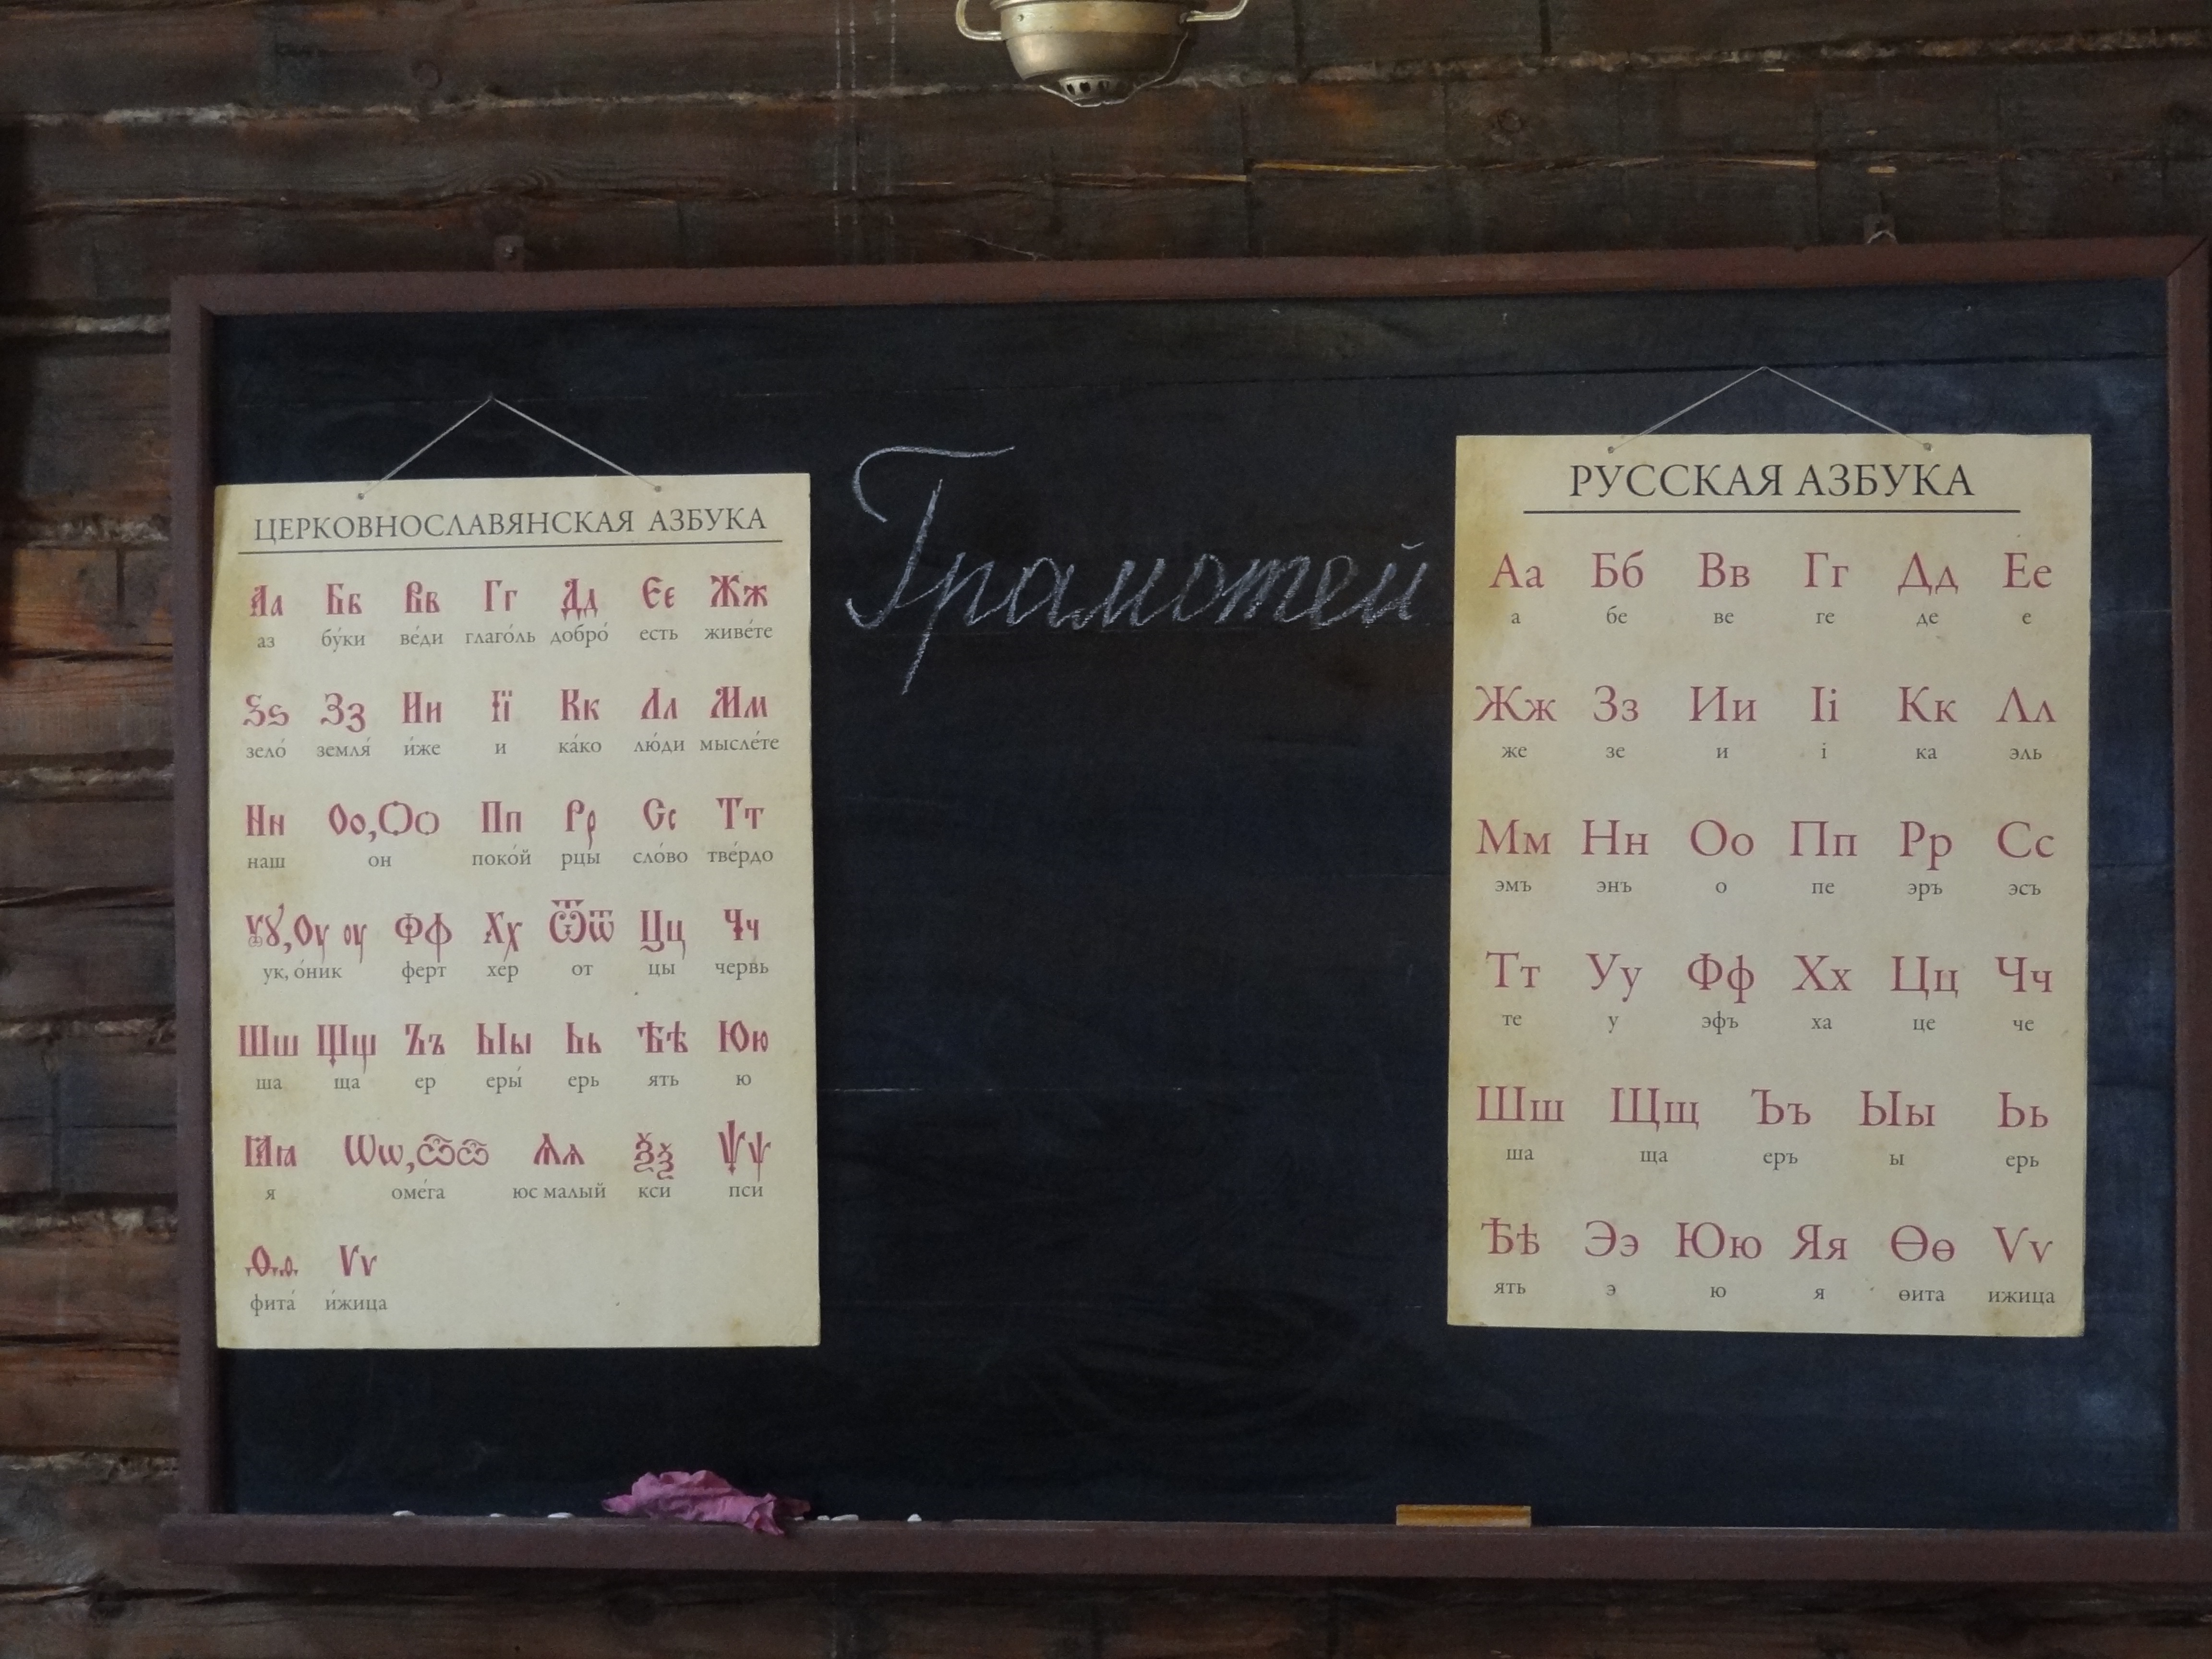 ЦЕРКОВНОСЛАВЯНСКАЯ АЗБУКА
Аа Бб Вв Гг Дд Єє Жж
аз бу́ки ве́ди глаго́ль добро́ есть живе́те
Ѕѕ Зз Ии Її Кк Лл Мм
зело́ земля́ и́же и ка́ко лю́ди мысле́те
Нн Оо,Ѻѻ Пп Рр Сс Тт
наш он поко́й рцы́ сло́во тве́рдо
Ꙋꙋ,Оу оу Фф Хх Ѿѿ Цц Чч
ук, о́ник ферт хер от цы червь
Шш Щщ Ъъ Ыы Ьь Ѣѣ Юю
ша ща ер еры́ ерь ять ю
Ꙗꙗ Ѡѡ,Ѽѽ Ѧѧ Ѯѯ Ѱѱ
я оме́га юс малый кси пси
Ѳѳ Ѵѵ
фита́ и́жица
Грамотей
РУССКАЯ АЗБУКА
Аа Бб Вв Гг Дд Ее
а бе ве ге де е
Жж Зз Ии Іі Кк Лл
же зе и і ка эль
Мм Нн Оо Пп Рр Сс
эмъ энъ о пе эръ эсъ
Тт Уу Фф Хх Цц Чч
те у эфъ ха це че
Шш Щщ Ъъ Ыы Ьь
ша ща еръ ы ерь
Ѣѣ Ээ Юю Яя Ѳѳ Ѵѵ
ять э ю я ѳита ижица